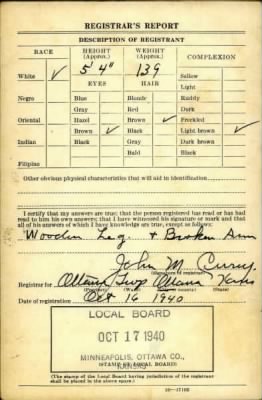 REGISTRAR'S REPORT
DESCRIPTION OF REGISTRANT
RACE HEIGHT (Approx.) WEIGHT (Approx.) COMPLEXION
White ✓ 5' 4" 139 Sallow
EYES HAIR Light
Negro Blue Blonde Ruddy
Gray Red Dark
Oriental Hazel Brown ✓ Freckled
Brown ✓ Black Light brown ✓
Indian Black Gray Dark brown
Bald Black
Filipino
Other obvious physical characteristics that will aid in identification
I certify that my answers are true; that the person registered has read or has had
read to him his own answers; that I have witnessed his signature or mark and that
all of his answers of which I have knowledge are true, except as follows:
Wooden Leg & Broken Arm
John M
(Signature of registrar)
Registrar for Ottawa Twp Ottawa Kans
(State)
Date of registration Oct 16 1940
LOCAL BOARD
OCT 17 1940
MINNEAPOLIS, OTTAWA CO.,
KANSAS
(STAMP OF LOCAL BOARD)
(The stamp of the Local Board having jurisdiction of the registrant
shall be placed in the above space.)